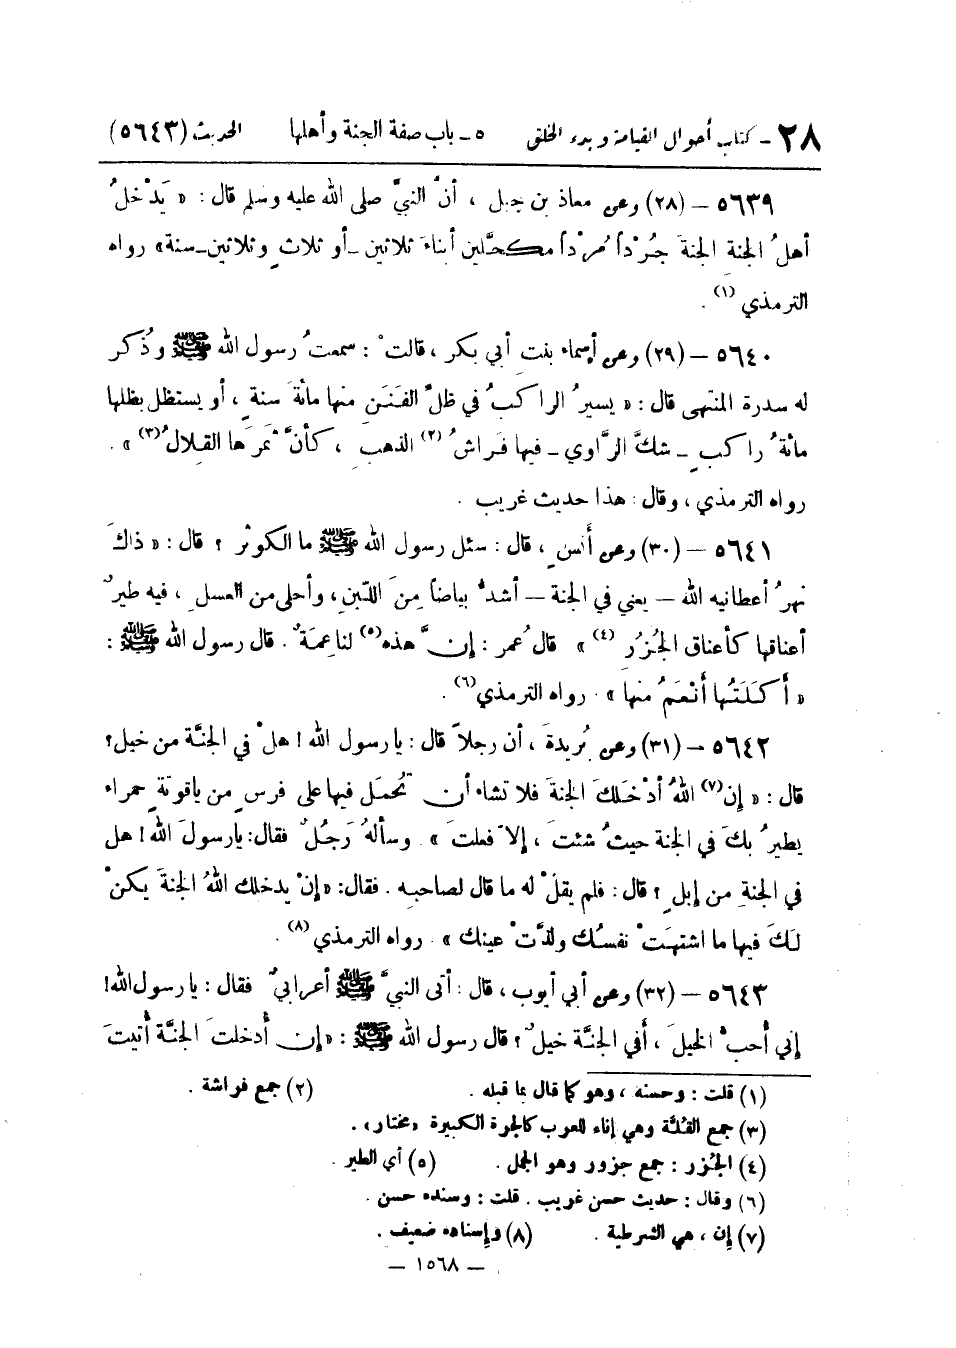 ٢٨ ـ كتاب أحوال القيامة وبدء الخلق ٥ ـ باب صفة الجنة وأهلها الحديث (٥٦٤٣)
٥٦٣٩ – (٢٨) وعن معاذ بن جبل ، أنَّ النبيَّ صلى الله عليه وسلم قال : « يَدْخلُ
أهلُ الجنة الجنةَ جُرْداً مُرْداً مكحَّلين أبناءَ ثلاثين ـ أو ثلاثٍ وثلاثين ـ سنة» رواه
الترمذي (١) .
٥٦٤٠ – (٢٩) وعن أسماء بنتِ أبي بكر ، قالتْ : سمعتُ رسول الله ﷺ وذُكر
له سدرة المنتهى قال : « يسيرُ الراكبُ في ظلِّ الفَنَنِ منها مائةَ سنةٍ ، أو يستظل بظلها
مائةُ راكبٍ ـ شكَّ الرَّاوي ـ فيها فَراشُ (٢) الذهبِ ، كأنَّ ثمرَها القِلالُ (٣) » .
رواه الترمذي ، وقال : هذا حديث غريب .
٥٦٤١ – (٣٠) وعن أنسٍ ، قال : سئل رسول الله ﷺ ما الكوثر ؟ قال : « ذاكَ
نهرُ أعطانيه الله – يعني في الجنة – أشدُّ بياضاً مِنَ اللَّبنِ ، وأحلى من العسلِ ، فيه طيرٌ
أعناقها كأعناق الجُزُرِ (٤) » قال عُمر : إنَّ هذه (٥) لناعِمَةٌ . قال رسول الله ﷺ :
« أَكَلَتُها أَنْعَمُ منها » . رواه الترمذي (٦) .
٥٦٤٢ – (٣١) وعن بُريدةَ ، أن رجلاً قال : يا رسول الله ! هلْ في الجنَّة من خيل ؟
قال : « إن (٧) اللهُ أدْخلَكَ الجنةَ فلا تشاء أن تُحمَل فيها على فرسٍ من ياقوتةٍ حمراء
يطيرُ بكَ في الجنة حيثُ شئتَ ، إلاَّ فعلتَ » . وسألهُ رَجُلٌ فقال : يا رسولَ الله ! هل
في الجنةِ من إبلٍ ؟ قال : فلم يقلْ له ما قال لصاحبه . فقال : «إنْ يدخلك اللهُ الجنةَ يكنْ
لكَ فيها ما اشتهَتْ نفسُك ولذَّتْ عينك » . رواه الترمذي (٨) .
٥٦٤٣ – (٣٢) وعن أبي أيوب ، قال : أتى النبيَّ ﷺ أعرابيٌ فقال : يا رسول الله !
إني أُحبُّ الخيلَ ، أَفي الجنَّة خيلٌ ؟ قال رسول الله ﷺ : «إن أُدخلتَ الجنَّة أُتيتَ
(١) قلت : وحسنه ، وهو كما قال بما قبله . (٢) جمع فراشة .
(٣) جمع القُلَّة وهي إناء للعرب كالجرة الكبيرة «مختار» .
(٤) الجُزر : جمع جزور وهو الجمل . (٥) أي الطير .
(٦) وقال : حديث حسن غريب . قلت : وسنده حسن .
(٧) إن ، هي الشرطية . (٨) وإسناده ضعيف .
– ١٥٦٨ –